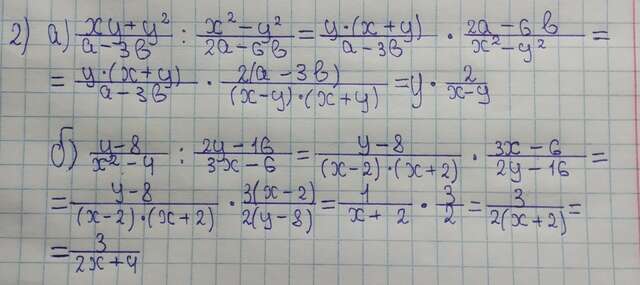 2) а) (xy+y²)/(a-3в) : (x²-y²)/(2a-6в) = (y·(x+y))/(a-3в) · (2a-6в)/(x²-y²) =
= (y·(x+y))/(a-3в) · (2(a-3в))/((x-y)·(x+y)) = y · 2/(x-y)
б) (y-8)/(x²-4) : (2y-16)/(3x-6) = (y-8)/((x-2)·(x+2)) · (3x-6)/(2y-16) =
= (y-8)/((x-2)·(x+2)) · (3(x-2))/(2(y-8)) = 1/(x+2) · 3/2 = 3/(2(x+2)) =
= 3/(2x+4)